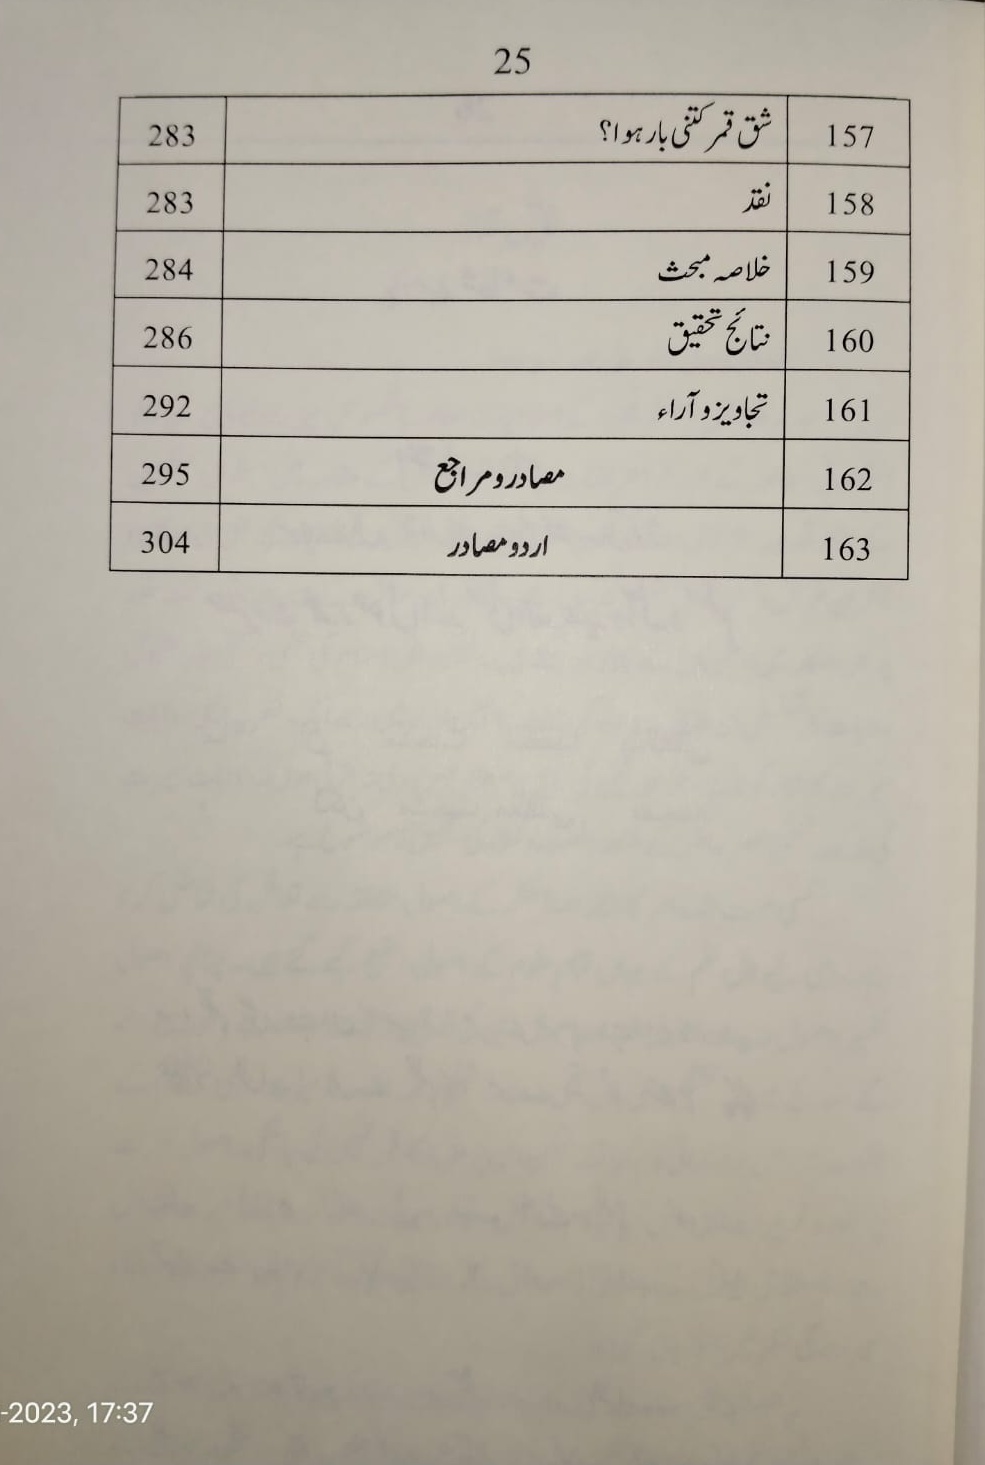 25
157 شق قمر کتنی بار ہوا؟ 283
158 نقد 283
159 خلاصہ مبحث 284
160 نتائج تحقیق 286
161 تجاویز و آراء 292
162 مصادر و مراجع 295
163 اردو مصادر 304
-2023, 17:37